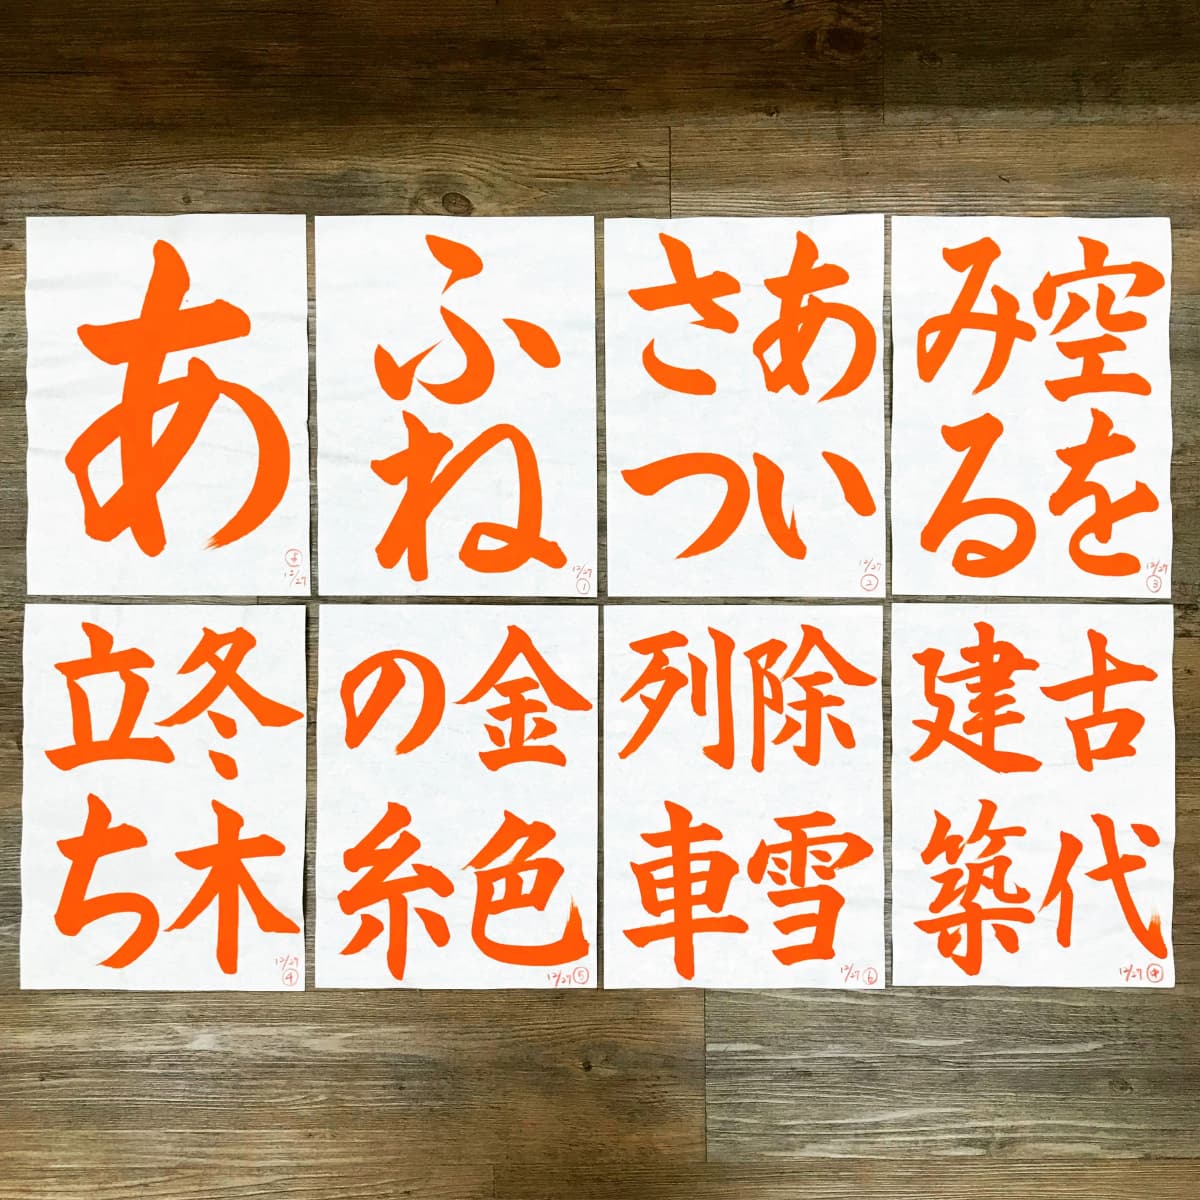 あ
よ
12/27
ふね
12/27
1
あい
さつ
12/27
2
空を
みる
12/27
3
冬木
立ち
12/27
4
金色
の糸
12/27
5
除雪
列車
12/27
6
古代
建築
12/27
中